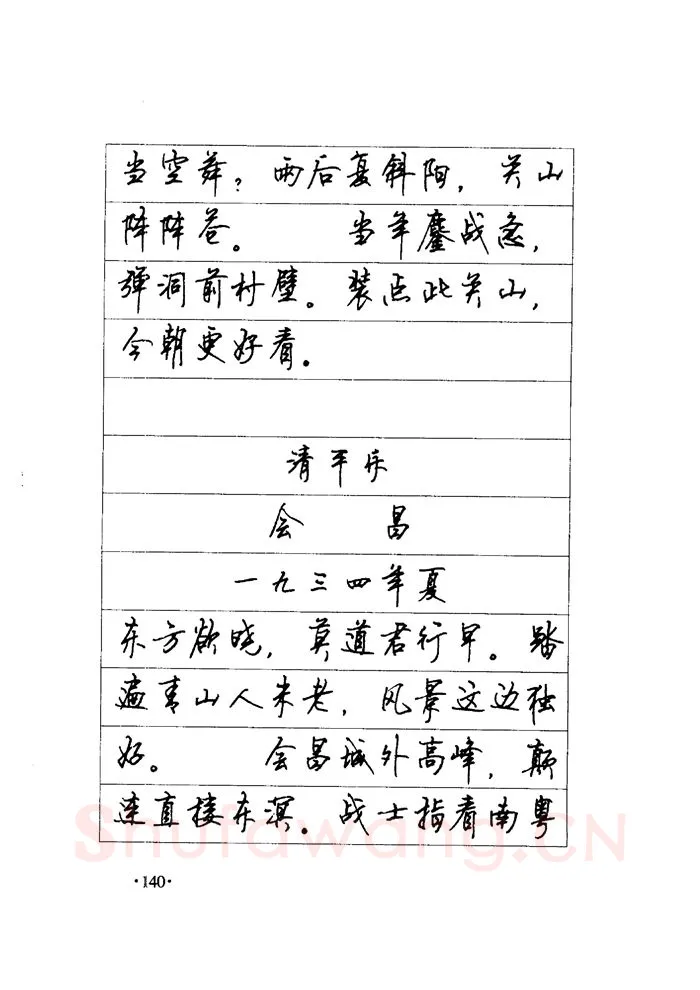 当空舞？雨后复斜阳，关山
阵阵苍。 当年鏖战急，
弹洞前村壁。装点此关山，
今朝更好看。
清平乐
会 昌
一九三四年夏
东方欲晓，莫道君行早。踏
遍青山人未老，风景这边独
好。 会昌城外高峰，颠
连直接东溟。战士指看南粤
Shufawang.CN
·140·